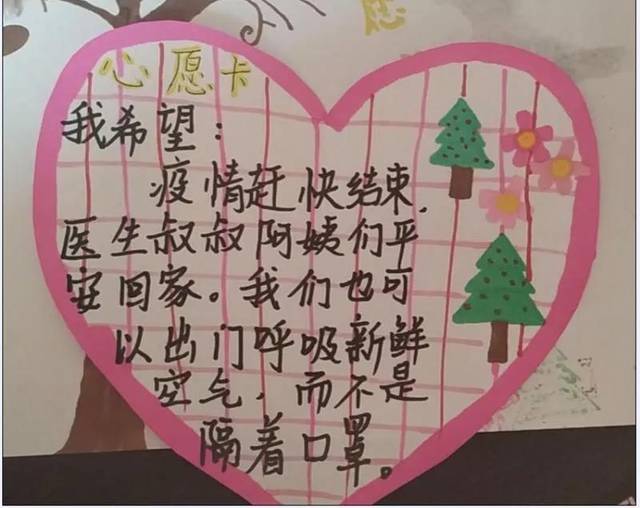 心愿卡
我希望：
疫情赶快结束，
医生叔叔阿姨们平
安回家。我们也可
以出门呼吸新鲜
空气，而不是
隔着口罩。